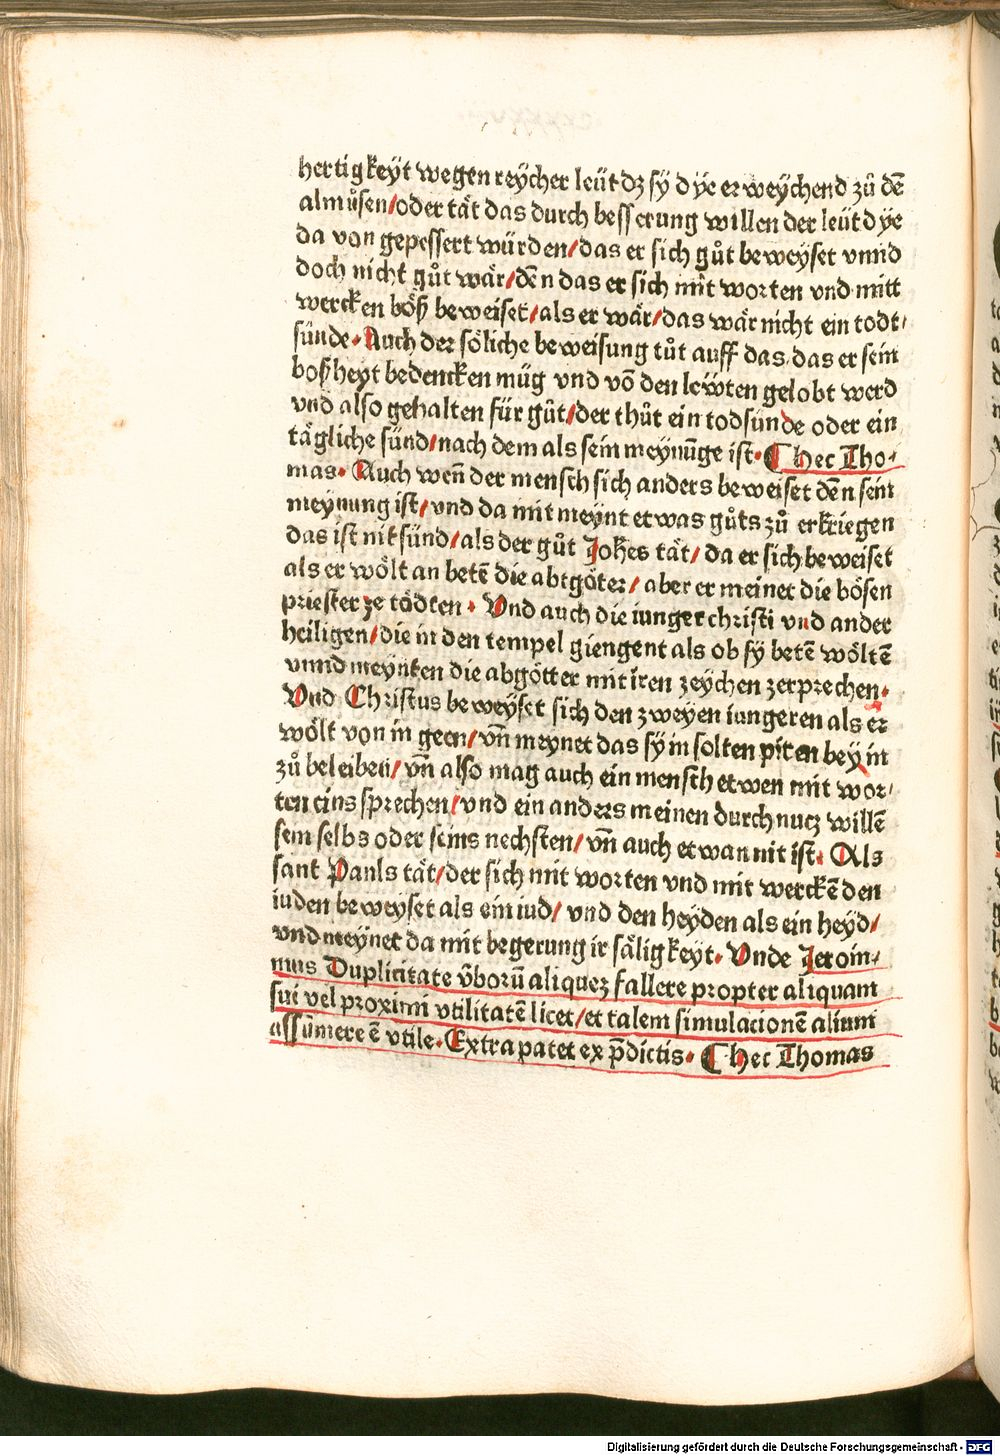 hertigkeÿt wegen reÿcher leüt dz sÿ dÿe erweÿchend zů dẽ
almůsen/oder tät das durch besserung willen der leüt dÿe
da von gepessert würden/das er sich gůt beweÿset vnnd
doch nicht gůt wär/dẽn das er sich mit worten vnd mitt
wercken böß beweiset/als er wär/das wär nicht ein todt/
sünde. Auch der söliche beweisung tůt auff das, das er sein
boßheyt bedencken müg vnd võ den lewten gelobt werd
vnd also gehalten für gůt/der thůt ein todsünde oder ein
tägliche sünd/nach dem als sein meynũge ist. Chec Tho/
mas. Auch wen̄ der mensch sich anders beweiset dẽn sein
meynung ist/vnd da mit meynt etwas gůts zů erkriegen
das ist nit sünd/als der gůt Jokes tät/ da er sich beweiset
als er wölt an betẽ die abtgöter/ aber er meinet die bösen
priester ze tödten. Vnd auch die iunger christi vnd ander
heiligen/die in den tempel giengent als ob sÿ betẽ wöltẽ
vnnd meynten die abgötter mit iren zeÿchen zerprechen.
Vnd Christus beweÿset sich den zweyen iungeren als er
wölt von in geen/vn̄ meynet das sÿ in solten piten beÿ in
zů beleiben/ vn̄ also mag auch ein mensch etwen mit wor/
ten eins sprechen/vnd ein anders meinen durch nucz willẽ
sein selbs oder seins nechsten/ vn̄ auch etwan nit ist. Als
sant Pauls tät/der sich mit worten vnd mit werckẽ den
iuden beweÿset als ein iud/ vnd den heÿden als ein heÿd/
vnd meÿnet da mit begerung ir säligkeÿt. Vnde Jeroin/
mus Duplicitate v̄borũ aliquez fallere propter aliquam
sui vel proximi vtilitatẽ licet/et talem simulacionẽ alium
assũmere ẽ vtile. Extra patet ex p̄dictis. Chec Thomas
Digitalisierung gefördert durch die Deutsche Forschungsgemeinschaft - DFG